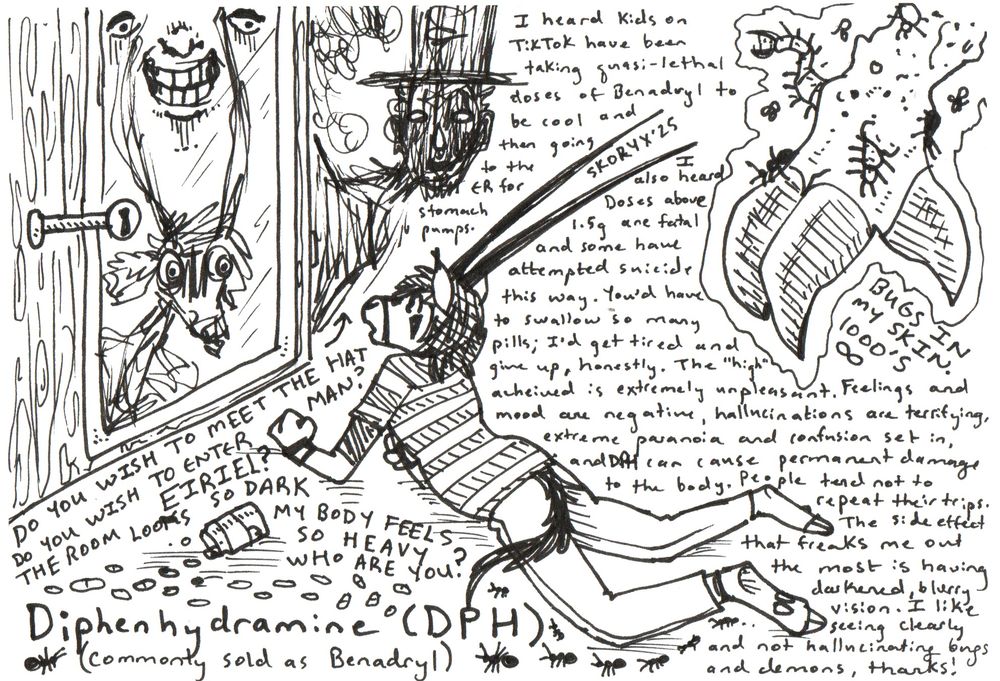 I heard kids on
TikTok have been
taking quasi-lethal
doses of Benadryl to
be cool and
then going
to the
ER for
stomach
pumps.
SKORYX '25
I
also heard
Doses above
1.5g are fatal
and some have
attempted suicide
this way. You'd have
to swallow so many
pills; I'd get tired and
give up, honestly. The "high"
acheived is extremely unpleasant. Feelings and
mood are negative, hallucinations are terrifying,
extreme paranoia and confusion set in,
and DPH can cause permanent damage
to the body. People tend not to
repeat their trips.
The side effect
that freaks me out
the most is having
darkened, blurry
vision. I like
seeing clearly
and not hallucinating bugs
and demons, thanks!
BUGS IN
MY SKIN!
1000'S
∞
DO YOU WISH TO MEET THE HAT
MAN?
DO YOU WISH TO ENTER
EIRIEL?
THE ROOM LOOKS SO DARK
MY BODY FEELS
SO HEAVY
WHO ARE YOU?
Diphenhydramine (DPH)
(commonly sold as Benadryl)